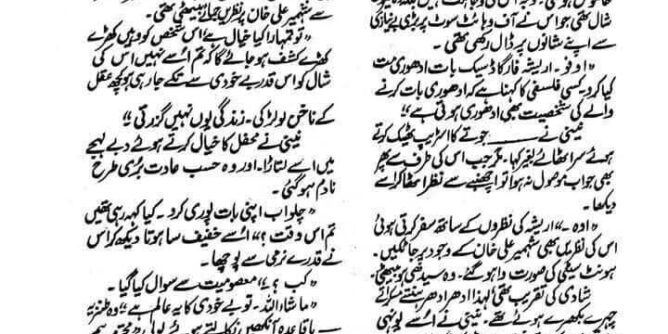 شال تھی جو اس نے آف وہائٹ سوٹ پر بڑی بے نیازی
سے اپنے شانوں پر ڈال رکھی تھی۔
"اوفو۔ اریشہ فار گاڈ سیک بات ادھوری مت
کیا کرو۔ کسی فلسفی کا کہنا ہے کہ ادھوری بات کرنے
والے کی شخصیت بھی ادھوری ہوتی ہے"
عینی نے ـــــــ جوتے کا اسٹریپ ٹھیک کرتے
ہوئے سر اٹھائے بغیر کہا۔ مگر جب اس کی طرف سے پھر
بھی جواب موصول نہ ہوا تو اچنبھے سے نظر اٹھا کر اسے
دیکھا۔
"اوہ۔" اریشہ کی نظروں کے ساتھ سفر کرتی ہوئی
اس کی نظریں بھی شہمیر علی خان کے وجود پر جا ٹکیں۔
ہونٹ سیٹی کی صورت وا ہو گئے۔ وہ سیدھی ہو بیٹھی
شادی کی تقریب تھی لہٰذا ادھر ادھر ہنستے مسکراتے
چہرے بکھرے ہوئے تھے۔ عینی نے اسے یونہی
سے شہمیر علی خان پر نظریں جمائے بیٹھی تھی۔
"تو تمہارا کیا خیال ہے اس شخص کو وہیں کھڑے
کھڑے کشف ہو جائے گا کہ تم اسے نہیں اس کی
شال کو اس قدر بے خودی سے تکے جا رہی ہو کچھ عقل
کے ناخن لو لڑکی۔ زندگی یوں نہیں گزرتی"
عینی نے محفل کا خیال کرتے ہوئے دبے لہجے
میں اسے لتاڑا۔ اور وہ حسب عادت بری طرح
نادم ہو گئی۔
"چلو اب اپنی بات پوری کرو۔ کیا کہہ رہی تھیں
تم اس وقت؟" اسے خفیف سا ہوتا دیکھ کر اس
نے قدرے نرمی سے پوچھا۔
"کب؟" معصومیت سے سوال کیا گیا۔
"ماشاء اللہ۔ تو بے خودی کا یہ عالم ہے" وہ طنزیہ
باقاعدہ آنکھیں نکالتے ہوئے بولی